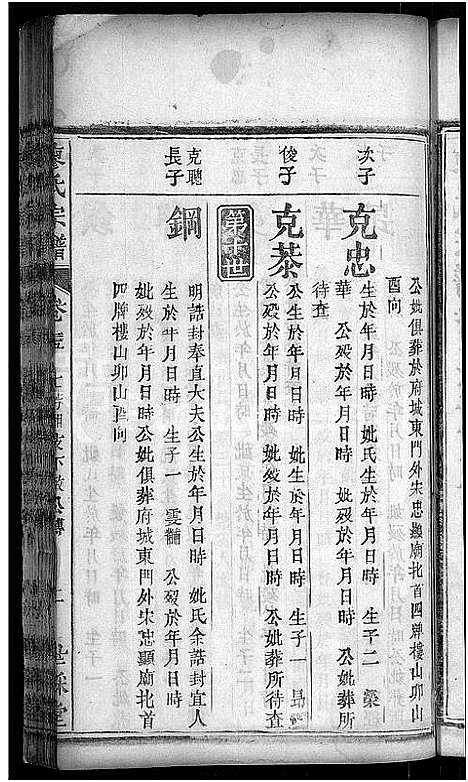 公妣俱葬於府城東門外宋忠顯廟北首四牌樓山卯山
酉向
次子
克忠
公生於年月日時 妣氏生於年月日時 生子二 榮
華 公歿於年月日時 妣歿於年月日時 公妣葬所
待查
俊子
克恭
公生於年月日時 妣生於年月日時 生子一 昂
公歿於年月日時 妣歿於年月日時 公妣葬所待查
第十世
克聰
長子
鋼
明誥封奉直大夫公生於年月日時 妣氏余誥封宜人
生於年月日時 生子一 雲龍 公歿於年月日時
妣歿於年月日時公妣俱葬府城東門外宋忠顯廟北首
四牌樓山卯山酉向
廖氏宗譜